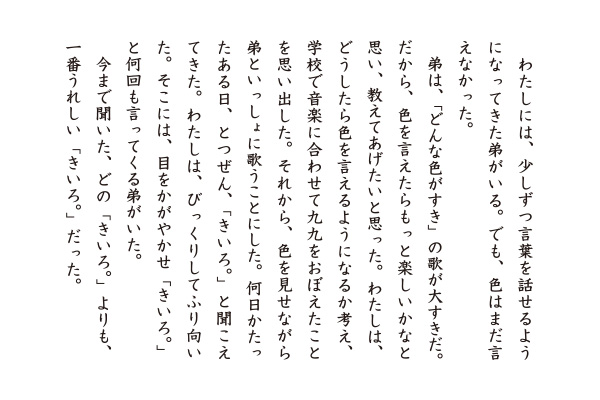 わたしには、少しずつ言葉を話せるよう
になってきた弟がいる。でも、色はまだ言
えなかった。
弟は、「どんな色がすき」の歌が大すきだ。
だから、色を言えたらもっと楽しいかなと
思い、教えてあげたいと思った。わたしは、
どうしたら色を言えるようになるか考え、
学校で音楽に合わせて九九をおぼえたこと
を思い出した。それから、色を見せながら
弟といっしょに歌うことにした。何日かたっ
たある日、とつぜん、「きいろ。」と聞こえ
てきた。わたしは、びっくりしてふり向い
た。そこには、目をかがやかせ「きいろ。」
と何回も言ってくる弟がいた。
今まで聞いた、どの「きいろ。」よりも、
一番うれしい「きいろ。」だった。